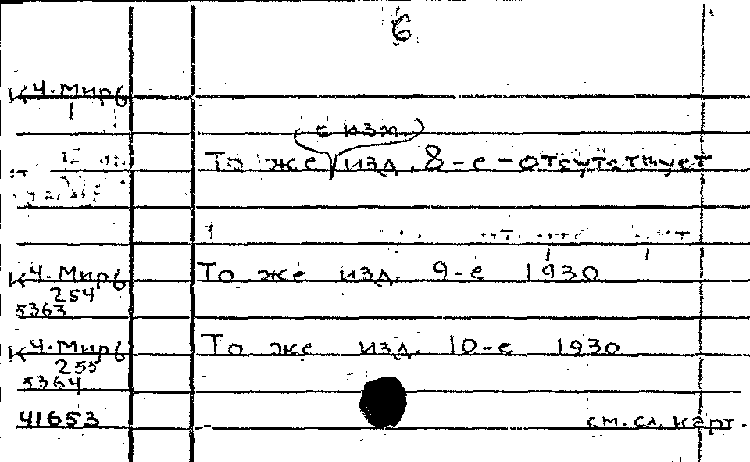 6
К Ч. Мир6
1
с изм.
То же изд. 8-е - отсутствует
К Ч. Мир6 То же изд. 9-е 1930
254
5363
К Ч. Мир6 То же изд. 10-е 1930
255
5364
41653 см. сл. карт.